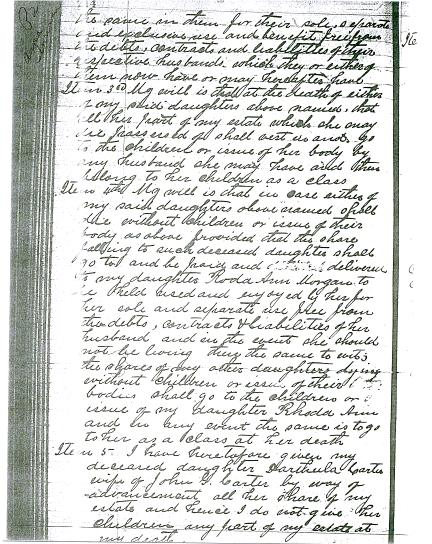 the same in them for their sole, separate
and exclusive use and benefit, free from
the debts, contracts and liabilities of their
respective husbands which they or either of
them now have or may hereafter have
Item 3rd My will is that at the death of either
of my said daughters above named, that
all her part of my estate which she may
be possessed of shall vest in and go
to the children or issue of her body by
any husband she may have and then
belong to her children as a class
Item 4th My will is that in case either of
my said daughters above named shall
die without children or issue of their
body as above provided that the share
falling to such deceased daughter shall
go to and be paid and delivered
to my daughter Roda Ann Morgan to
be held used and enjoyed by her for
her sole and separate use free from
the debts, contracts & liabilities of her
husband and in the event she should
not be living then the same to wit;
the shares of my other daughters dying
without children or issue of their
bodies shall go to the children or
issue of my daughter Rhoda Ann
and in any event the same is to go
to her as a class at her death
Item 5- I have heretofore given my
deceased daughter Carter
wife of John Carter by way of
advancement all her share of my
estate and hence I do not give her
children any part of my estate at
my death